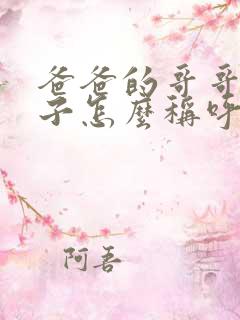 爸爸的哥哥
子怎麼稱呼
阿吾